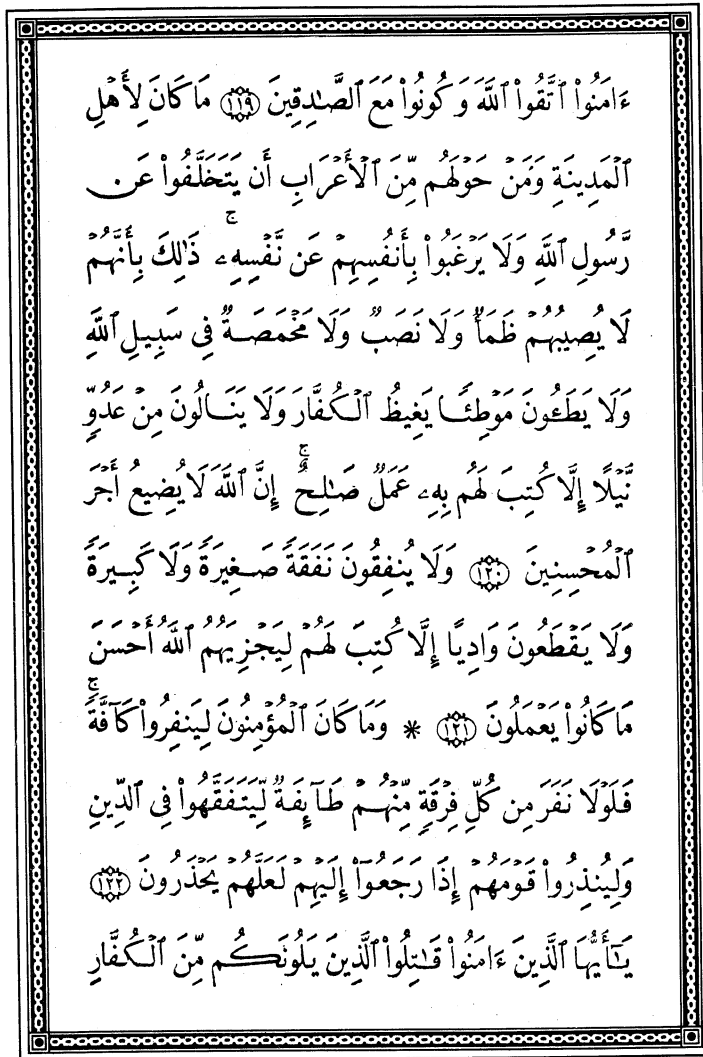 ءَامَنُوا۟ ٱتَّقُوا۟ ٱللَّهَ وَكُونُوا۟ مَعَ ٱلصَّـٰدِقِينَ ١١٩ مَا كَانَ لِأَهْلِ
ٱلْمَدِينَةِ وَمَنْ حَوْلَهُم مِّنَ ٱلْأَعْرَابِ أَن يَتَخَلَّفُوا۟ عَن
رَّسُولِ ٱللَّهِ وَلَا يَرْغَبُوا۟ بِأَنفُسِهِمْ عَن نَّفْسِهِۦ ۚ ذَٰلِكَ بِأَنَّهُمْ
لَا يُصِيبُهُمْ ظَمَأٌ وَلَا نَصَبٌ وَلَا مَخْمَصَةٌ فِى سَبِيلِ ٱللَّهِ
وَلَا يَطَـُٔونَ مَوْطِئًا يَغِيظُ ٱلْكُفَّارَ وَلَا يَنَالُونَ مِنْ عَدُوٍّ
نَّيْلًا إِلَّا كُتِبَ لَهُم بِهِۦ عَمَلٌ صَـٰلِحٌ ۚ إِنَّ ٱللَّهَ لَا يُضِيعُ أَجْرَ
ٱلْمُحْسِنِينَ ١٢٠ وَلَا يُنفِقُونَ نَفَقَةً صَغِيرَةً وَلَا كَبِيرَةً
وَلَا يَقْطَعُونَ وَادِيًا إِلَّا كُتِبَ لَهُمْ لِيَجْزِيَهُمُ ٱللَّهُ أَحْسَنَ
مَا كَانُوا۟ يَعْمَلُونَ ١٢١ * وَمَا كَانَ ٱلْمُؤْمِنُونَ لِيَنفِرُوا۟ كَآفَّةً ۚ
فَلَوْلَا نَفَرَ مِن كُلِّ فِرْقَةٍ مِّنْهُمْ طَآئِفَةٌ لِّيَتَفَقَّهُوا۟ فِى ٱلدِّينِ
وَلِيُنذِرُوا۟ قَوْمَهُمْ إِذَا رَجَعُوٓا۟ إِلَيْهِمْ لَعَلَّهُمْ يَحْذَرُونَ ١٢٢
يَـٰٓأَيُّهَا ٱلَّذِينَ ءَامَنُوا۟ قَـٰتِلُوا۟ ٱلَّذِينَ يَلُونَكُم مِّنَ ٱلْكُفَّارِ